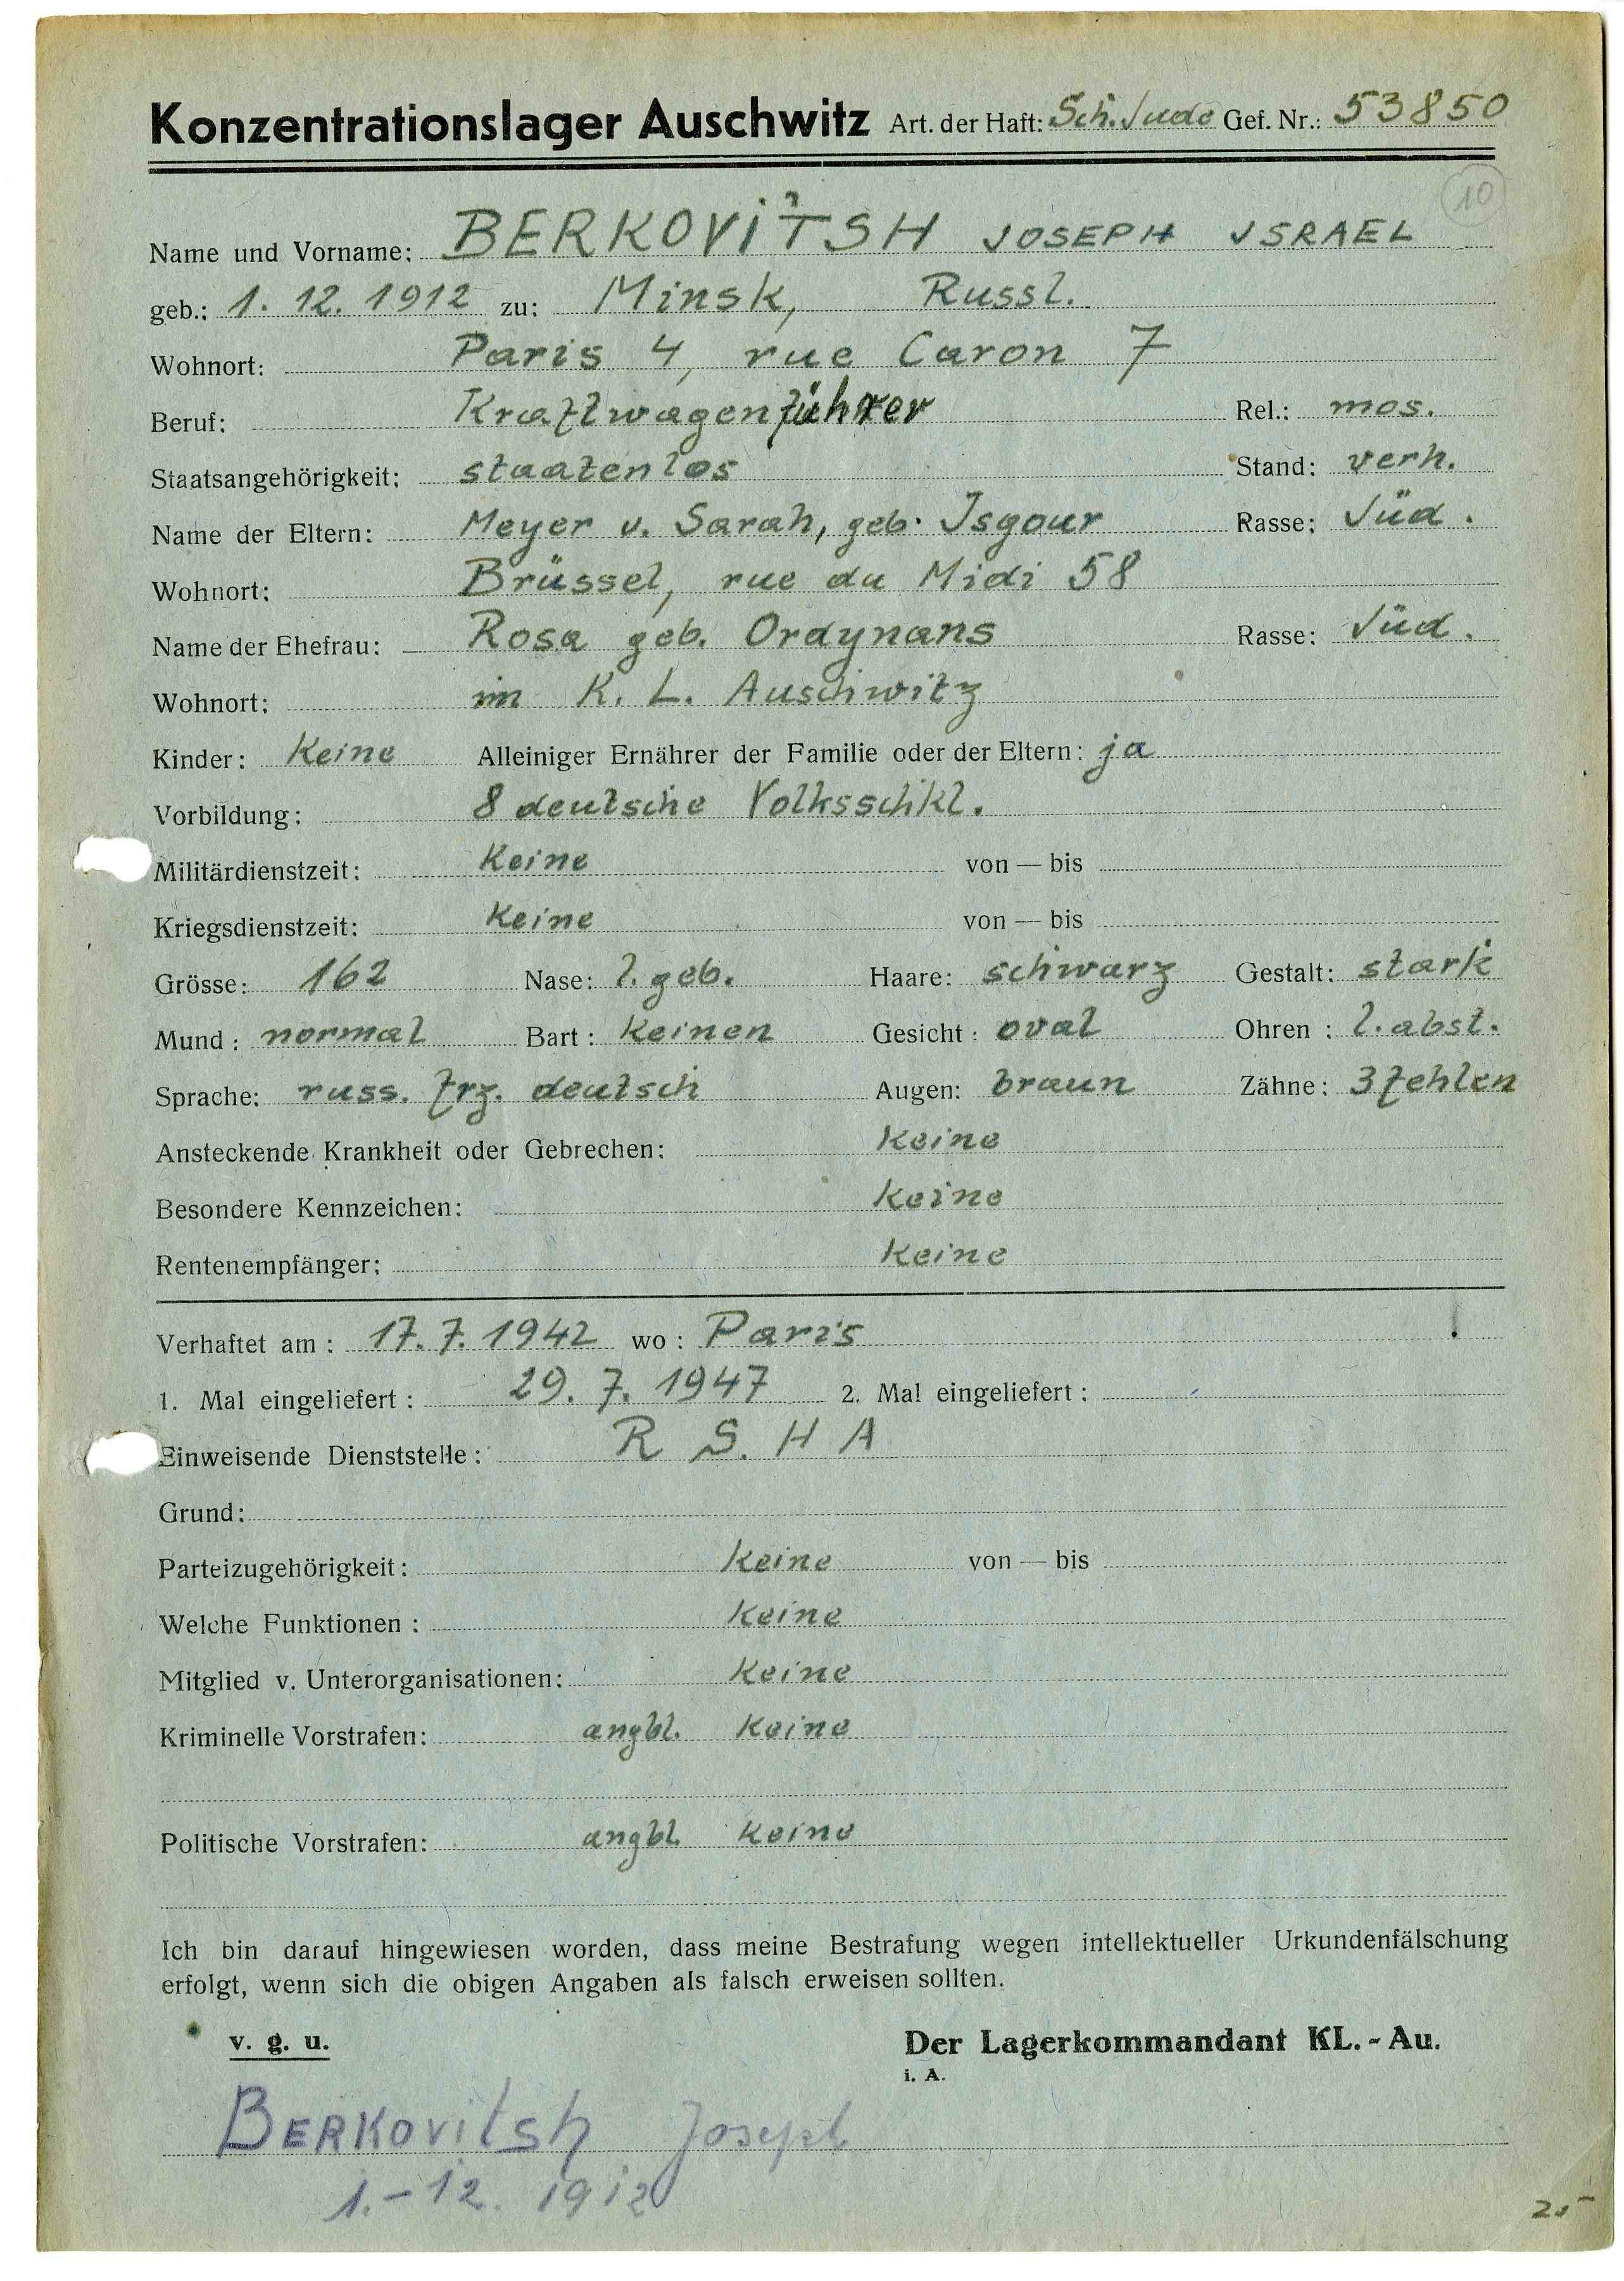 Konzentrationslager Auschwitz Art. der Haft: Sch. Jude Gef. Nr.: 53850
10
Name und Vorname: BERKOVITSH JOSEPH ISRAEL
geb.: 1. 12. 1912 zu: Minsk, Russl.
Wohnort: Paris 4, rue Caron 7
Beruf: Kraftwagenführer Rel.: mos.
Staatsangehörigkeit: staatenlos Stand: verh.
Name der Eltern: Meyer u. Sarah, geb. Isgour Rasse: Jüd.
Wohnort: Brüssel, rue du Midi 58
Name der Ehefrau: Rosa geb. Ordynans Rasse: Jüd.
Wohnort: im K. L. Auschwitz
Kinder: Keine Alleiniger Ernährer der Familie oder der Eltern: ja
Vorbildung: 8 deutsche Volksschkl.
Militärdienstzeit: Keine von — bis
Kriegsdienstzeit: Keine von — bis
Grösse: 162 Nase: l. geb. Haare: schwarz Gestalt: stark
Mund: normal Bart: keinen Gesicht: oval Ohren: l. abst.
Sprache: russ. frz. deutsch Augen: braun Zähne: 3 fehlen
Ansteckende Krankheit oder Gebrechen: Keine
Besondere Kennzeichen: Keine
Rentenempfänger: Keine
Verhaftet am: 17. 7. 1942 wo: Paris
1. Mal eingeliefert: 29. 7. 1947 2. Mal eingeliefert:
Einweisende Dienststelle: R S. H A
Grund:
Parteizugehörigkeit: Keine von — bis
Welche Funktionen: Keine
Mitglied v. Unterorganisationen: Keine
Kriminelle Vorstrafen: angbl. Keine
Politische Vorstrafen: angbl. Keine
Ich bin darauf hingewiesen worden, dass meine Bestrafung wegen intellektueller Urkundenfälschung
erfolgt, wenn sich die obigen Angaben als falsch erweisen sollten.
v. g. u. Der Lagerkommandant KL. - Au.
i. A.
BERKOVitsh Joseph
1.-12. 1912